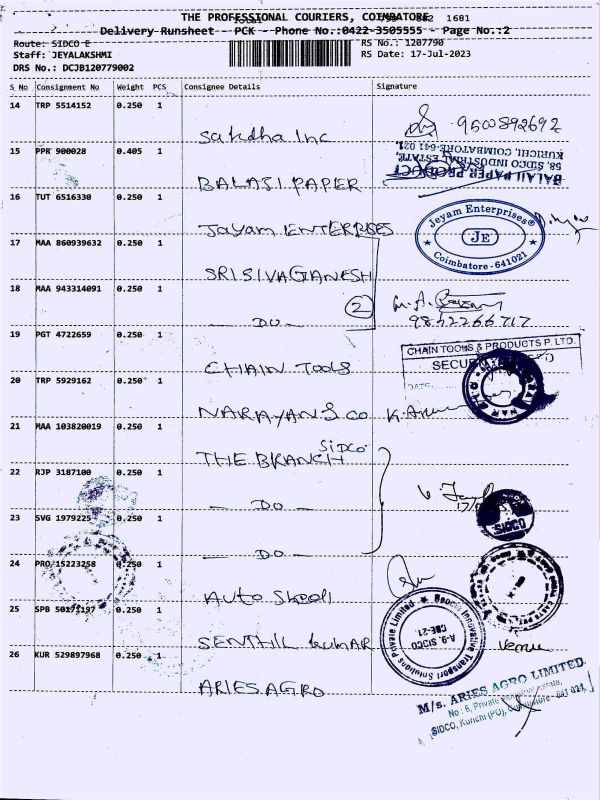 THE PROFESSIONAL COURIERS, COIMBATORE 1681
Delivery Runsheet - PCK - Phone No.:0422-3505555 - Page No.:2
Route: SIDCO E
Staff: JEYALAKSHMI
DRS No.: DCJB120779002
RS No.: 1207790
RS Date: 17-Jul-2023
S No Consignment No Weight PCS Consignee Details Signature
14 TRP 5514152 0.250 1
Sakdha Inc 9500892692
15 PPR 900028 0.405 1
BALAJI PAPER
BALAJI PAPER PRODUCT
58, SIDCO INDUSTRIAL ESTATE,
KURICHI, COIMBATORE-641 021.
16 TUT 6516330 0.250 1
Jayam ENTERPRISES
Jeyam Enterprises®
JE
Coimbatore - 641021
17 MAA 860939632 0.250 1
SRI SIVAGANESH
18 MAA 943314091 0.250 1
2
- DO -
9852266717
19 PGT 4722659 0.250 1
CHAIN TOOLS
CHAIN TOOLS & PRODUCTS P. LTD.
DATE
20 TRP 5929162 0.250 1
NARAYAN & CO
21 MAA 103820019 0.250 1
THE BRANCH SIDCO
22 RJP 3187100 0.250 1
- DO -
SIDCO
23 SVG 1979225 0.250 1
- DO -
24 PRO 15223258 0.250 1
25 SPB 50171197 0.250 1
SENTHIL kumar
Innovative Transport Solutions Private Limited
A-9, SIDCO
CBE-21.
26 KUR 529897968 0.250 1
ARIES AGRO
M/s. ARIES AGRO LIMITED
No : 6, Private Industrial Estate,
SIDCO, Kurichi (PO), Coimbatore - 641 021.